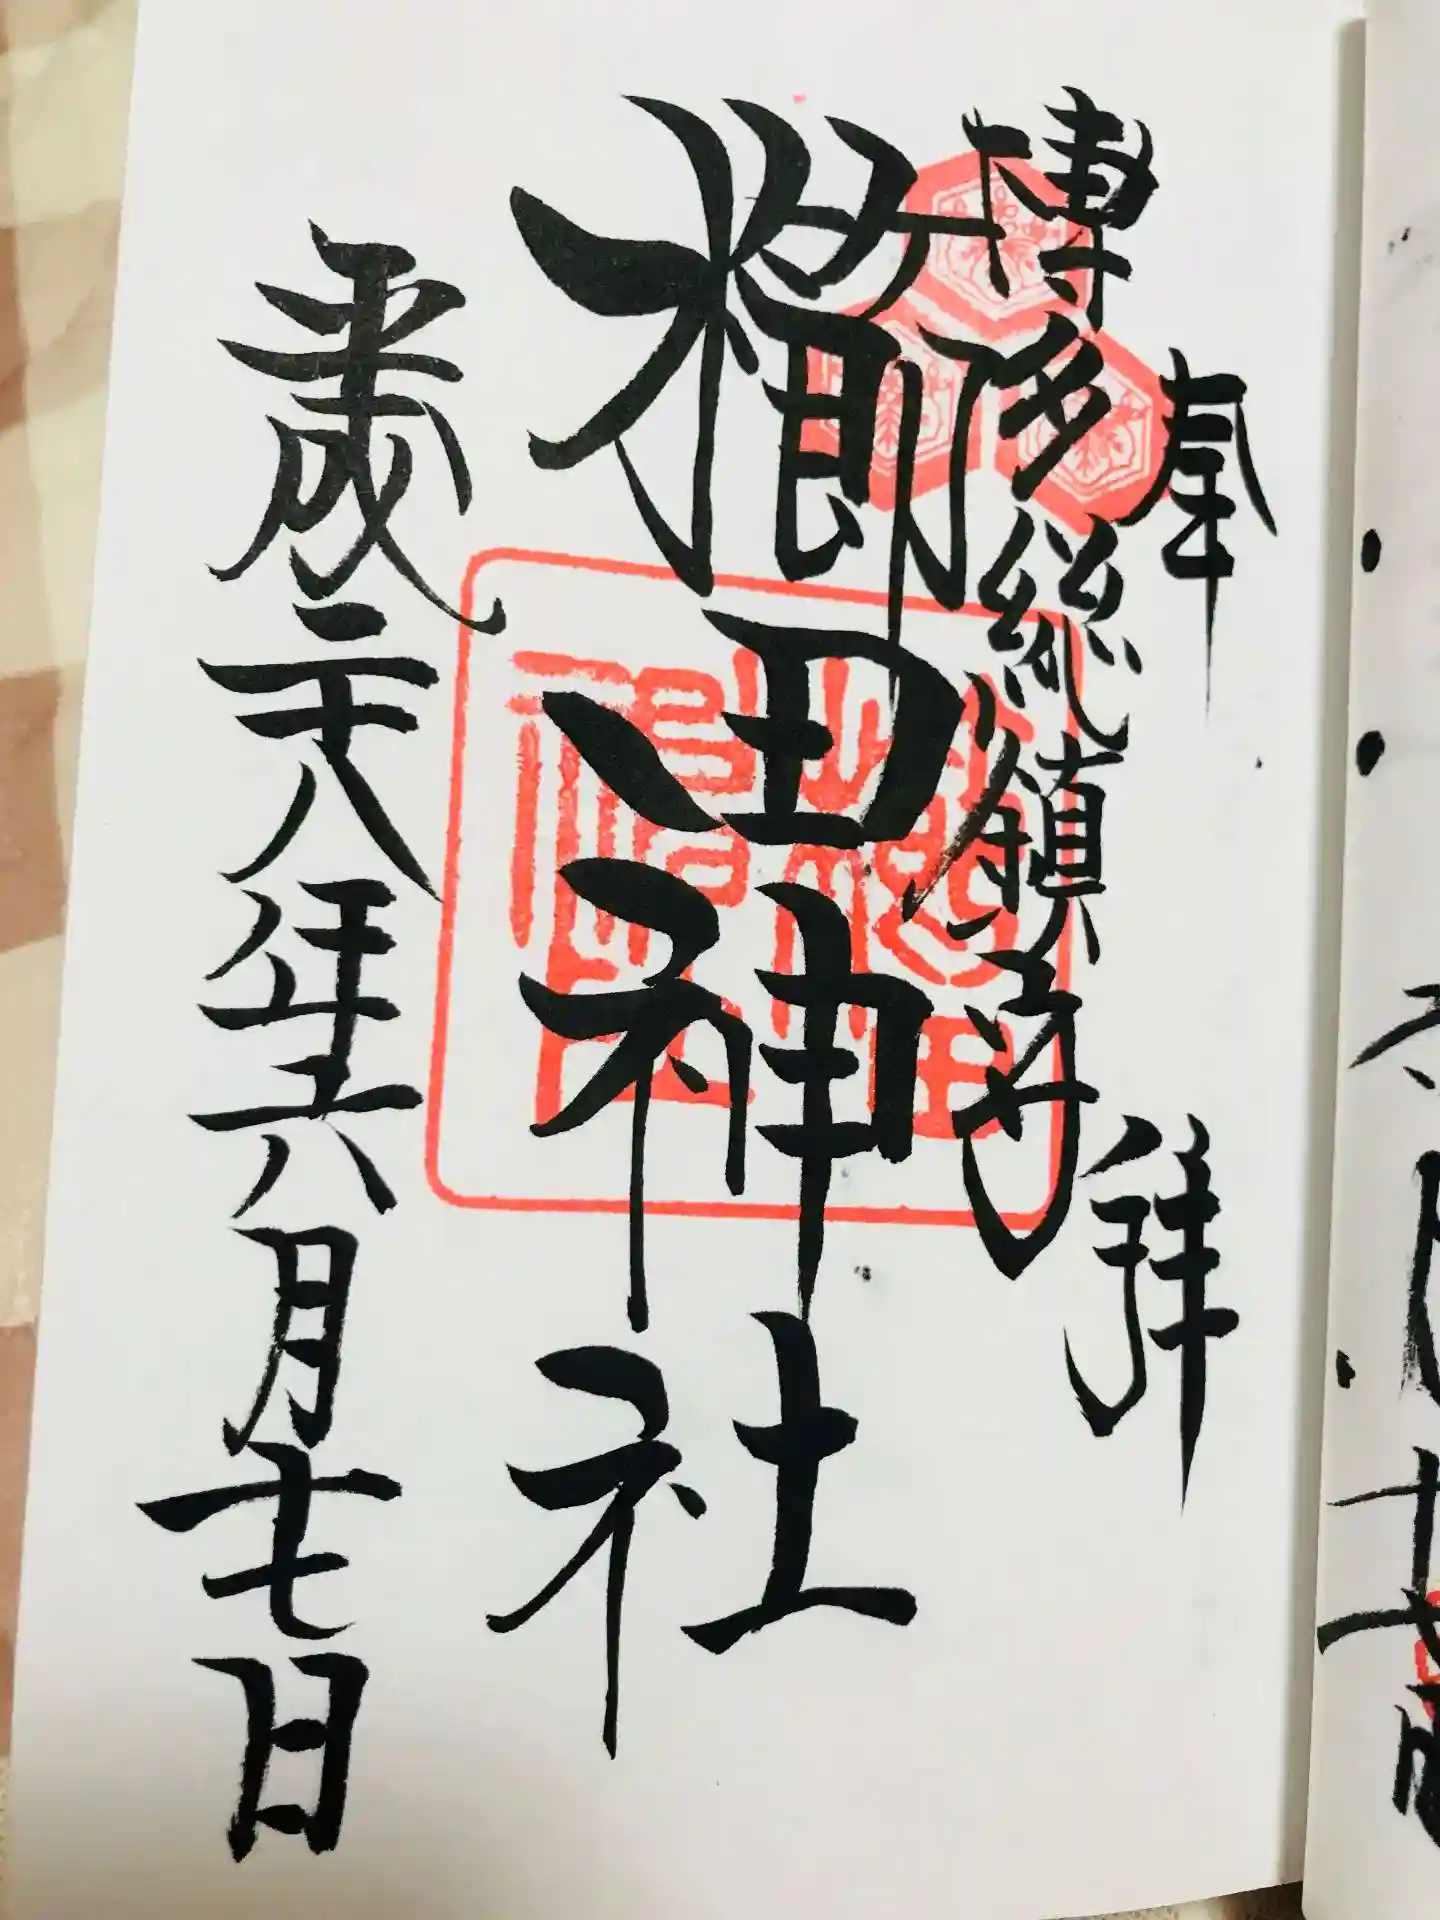 奉拝
博多総鎮守
櫛田神社
平成二十八年六月七日